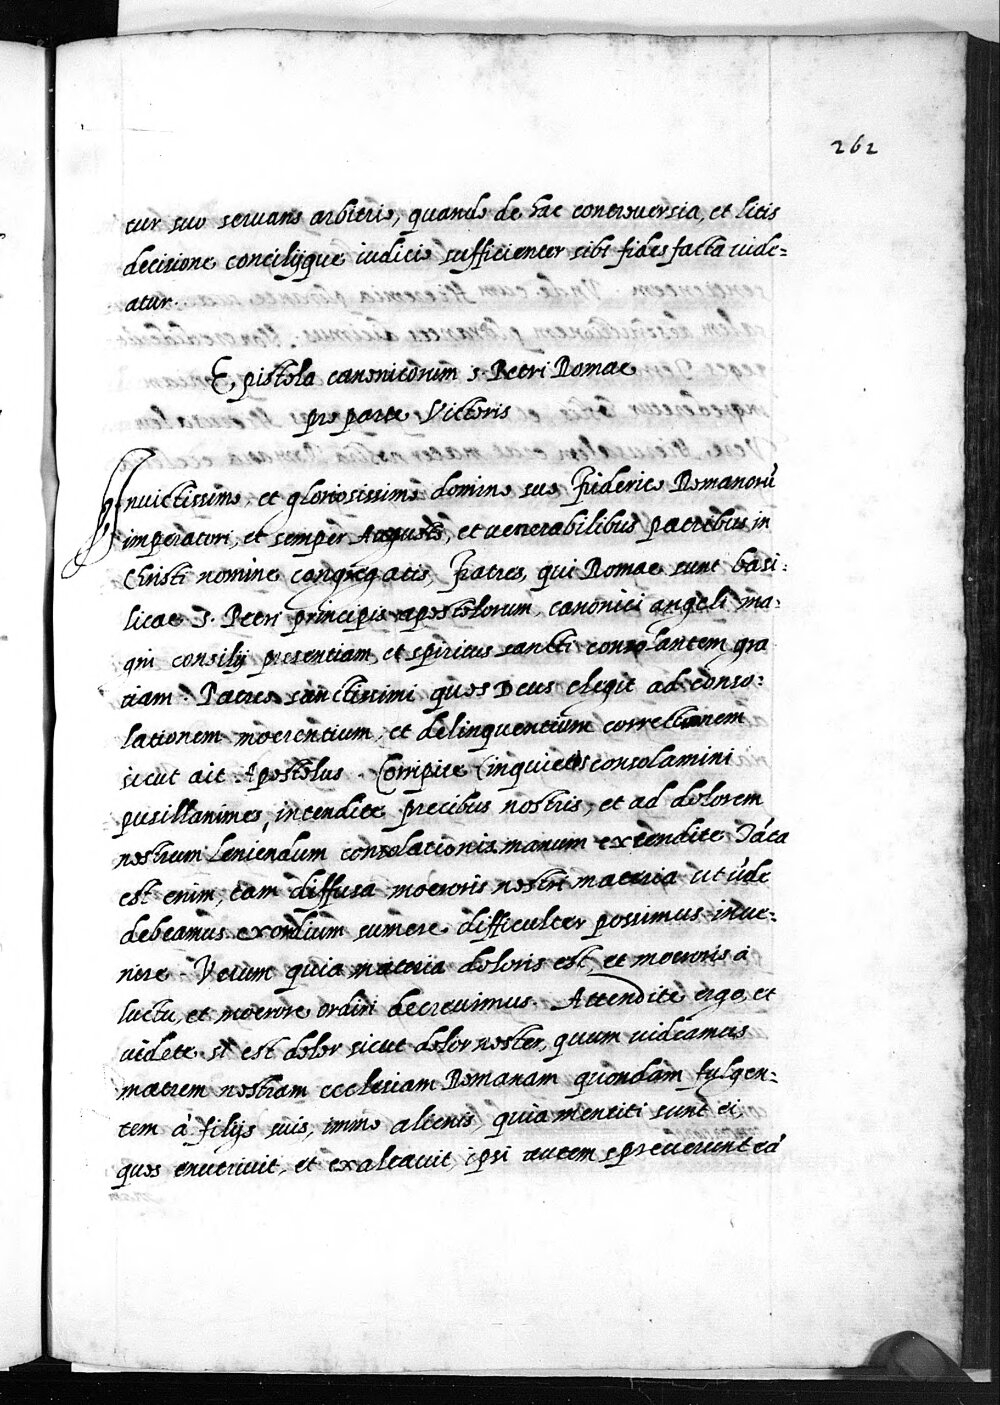 262
tur suo seruans arbitrio, quando de hac controuersia, et litis
decisione concilijque iudicio sufficienter sibi fides facta uide=
atur.
Epistola canonicorum S. Petri Romae
pro parte Victoris
Inuictissimo, et gloriosissimo domino suo Friderico Romanorũ
imperatori, et semper Augusto, et uenerabilibus patribus in
Christi nomine congregatis, Fratres, qui Romae sunt basi=
licae S. Petri principis apostolorum, canonici angeli ma=
gni consilij presentiam, et spiritus sancti consolantem gra
tiam. Patres sanctissimi quos Deus elegit ad conso=
lationem moerentium, et delinquentium correctionem
sicut ait Apostolus. Corripite inquietos consolamini
pusillanimes, intendite precibus nostris, et ad dolorem
nostrum leniendum consolationis manum extendite Táta
est enim, tam diffusa moeroris nostri materia ut ũde
debeamus exordium sumere difficulter possimus inue=
nire. Verum quia materia doloris est, et moeroris á
luctu, et moerore ordiri decreuimus. Attendite ergo, et
uidete si est dolor sicut dolor noster, quum uideamus
matrem nostram ecclesiam Romanam quondam fulgen=
tem á filijs suis, immo alienis, quia mentiti sunt ei,
quos enutriuit, et exaltauit, ipsi autem spreuerunt eá